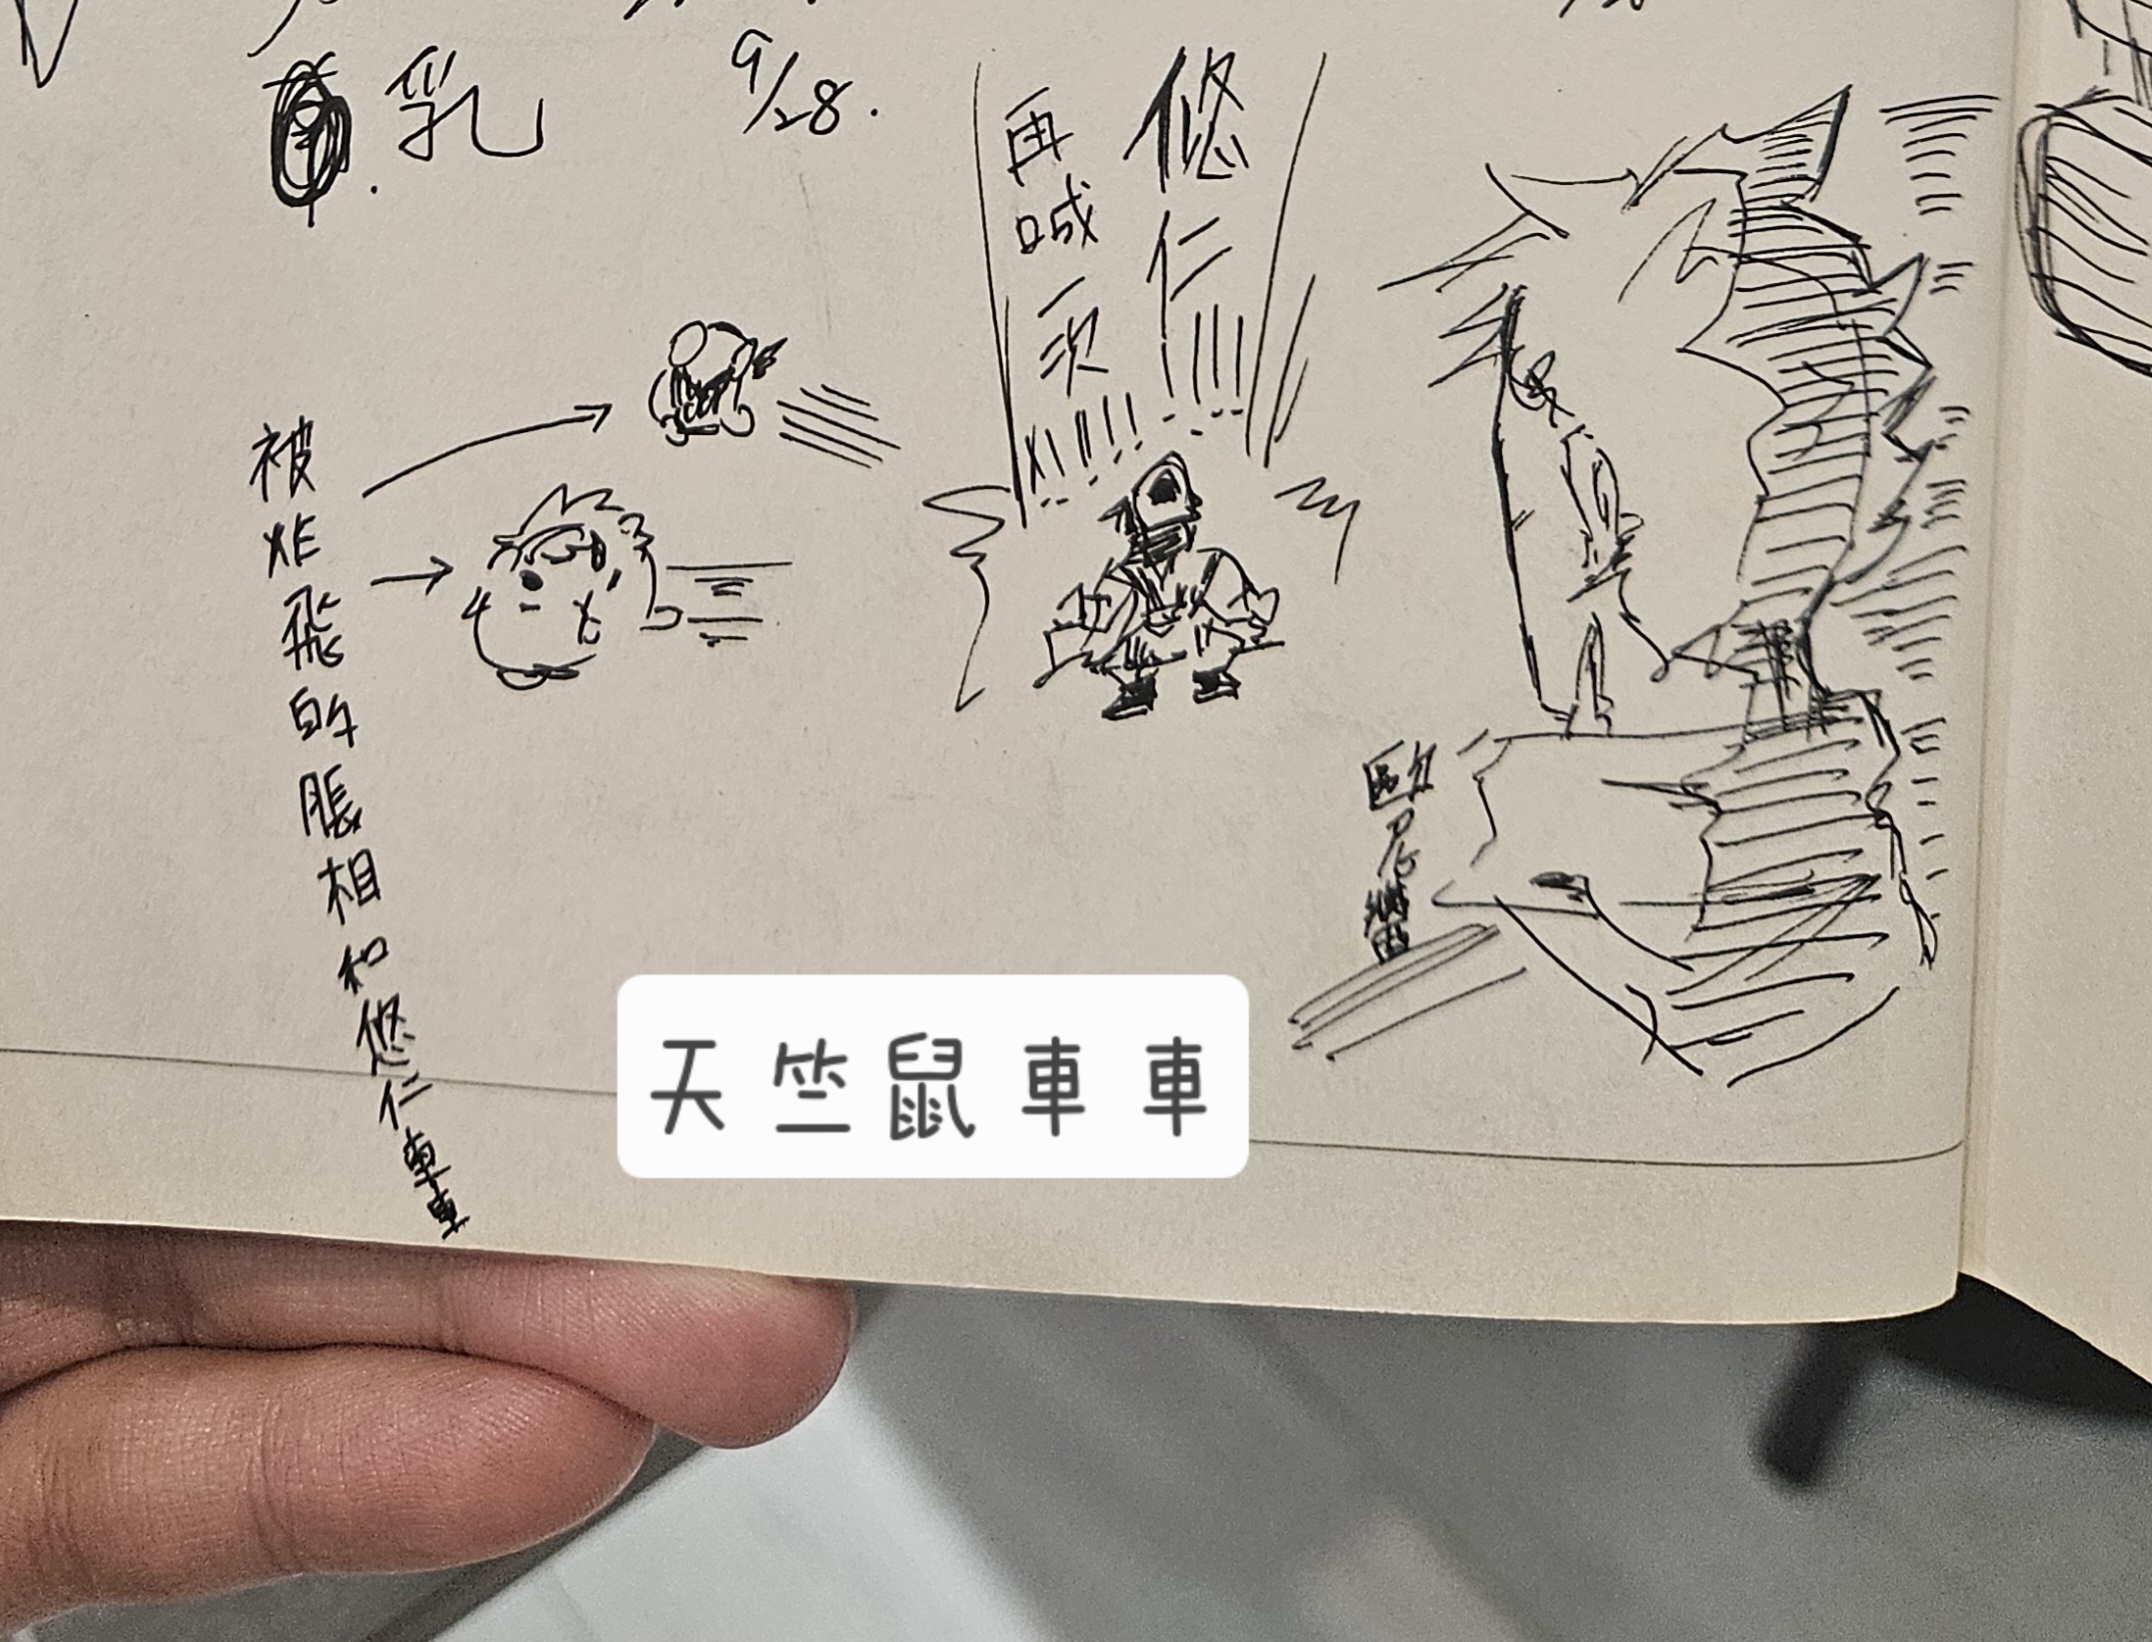 乳
9/28.
悠仁!!!
再喊一次
被炸飛的脹相和悠仁車車
歐尼醬
天竺鼠車車